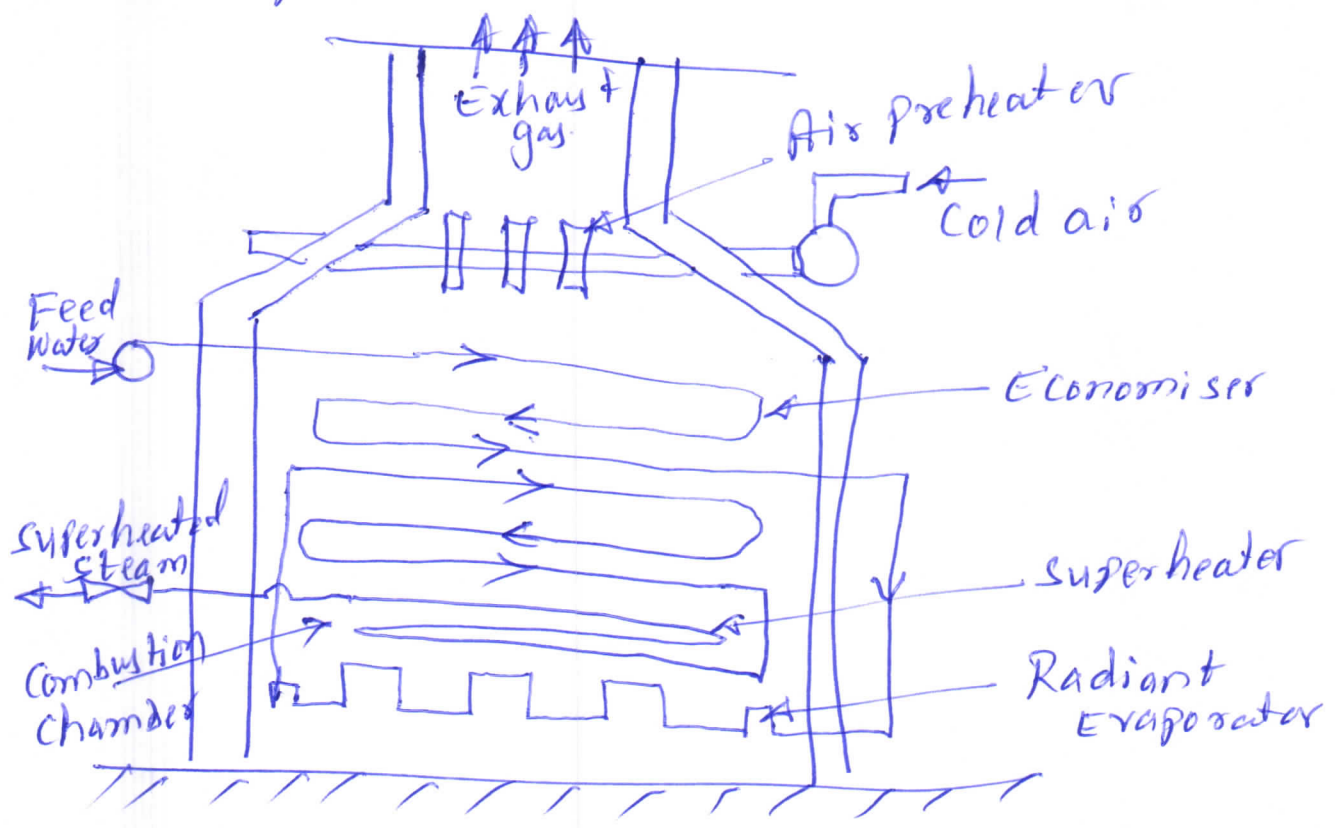 Exhaust
gas.
Air preheater
Cold air
Feed
water
Economiser
Superheated
steam
Superheater
Combustion
Chamber
Radiant
Evaporator